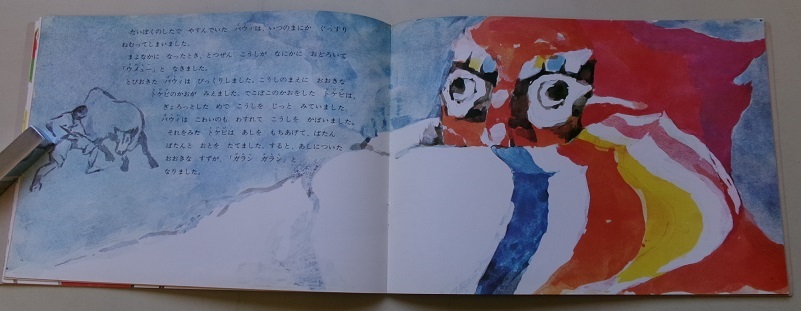 たいぼくのしたで やすんでいた パウィは、いつのまにか ぐっすり
ねむってしまいました。
まよなかに なったとき、とつぜん こうしが なにかに おどろいて
「ウメェー」と なきました。
とびおきた パウィは びっくりしました。こうしのまえに おおきな
トケビのかおが みえました。でこぼこのかおをした トケビは、
ぎょろっとした めで こうしを じっと みていました。
パウィは こわいのも わすれて こうしを かばいました。
それをみた トケビは あしを もちあげて、ばたん
ばたんと おとを たてました。すると、あしについた
おおきな すずが、「ガラン ガラン」と
なりました。